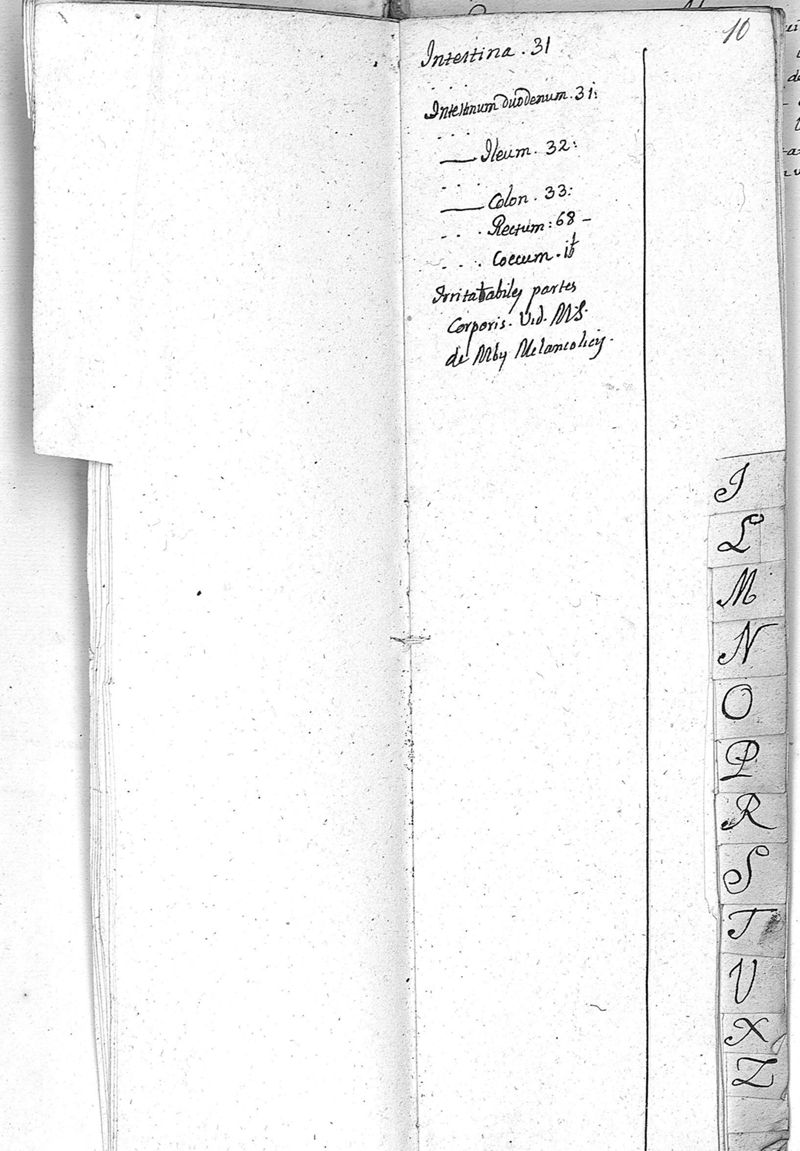 10
Intestina . 31
. . . .
Intestinum duodenum . 31:
. . . .
—— Ileum . 32:
. . . .
—— Colon . 33:
. . . Rectum : 68 –
. . . Coecum . ib
Irritatabiles partes
Corporis . Vid. MS.
de Mby Melancolicij .
I
L
M
N
O
P
R
S
T
V
X
Z